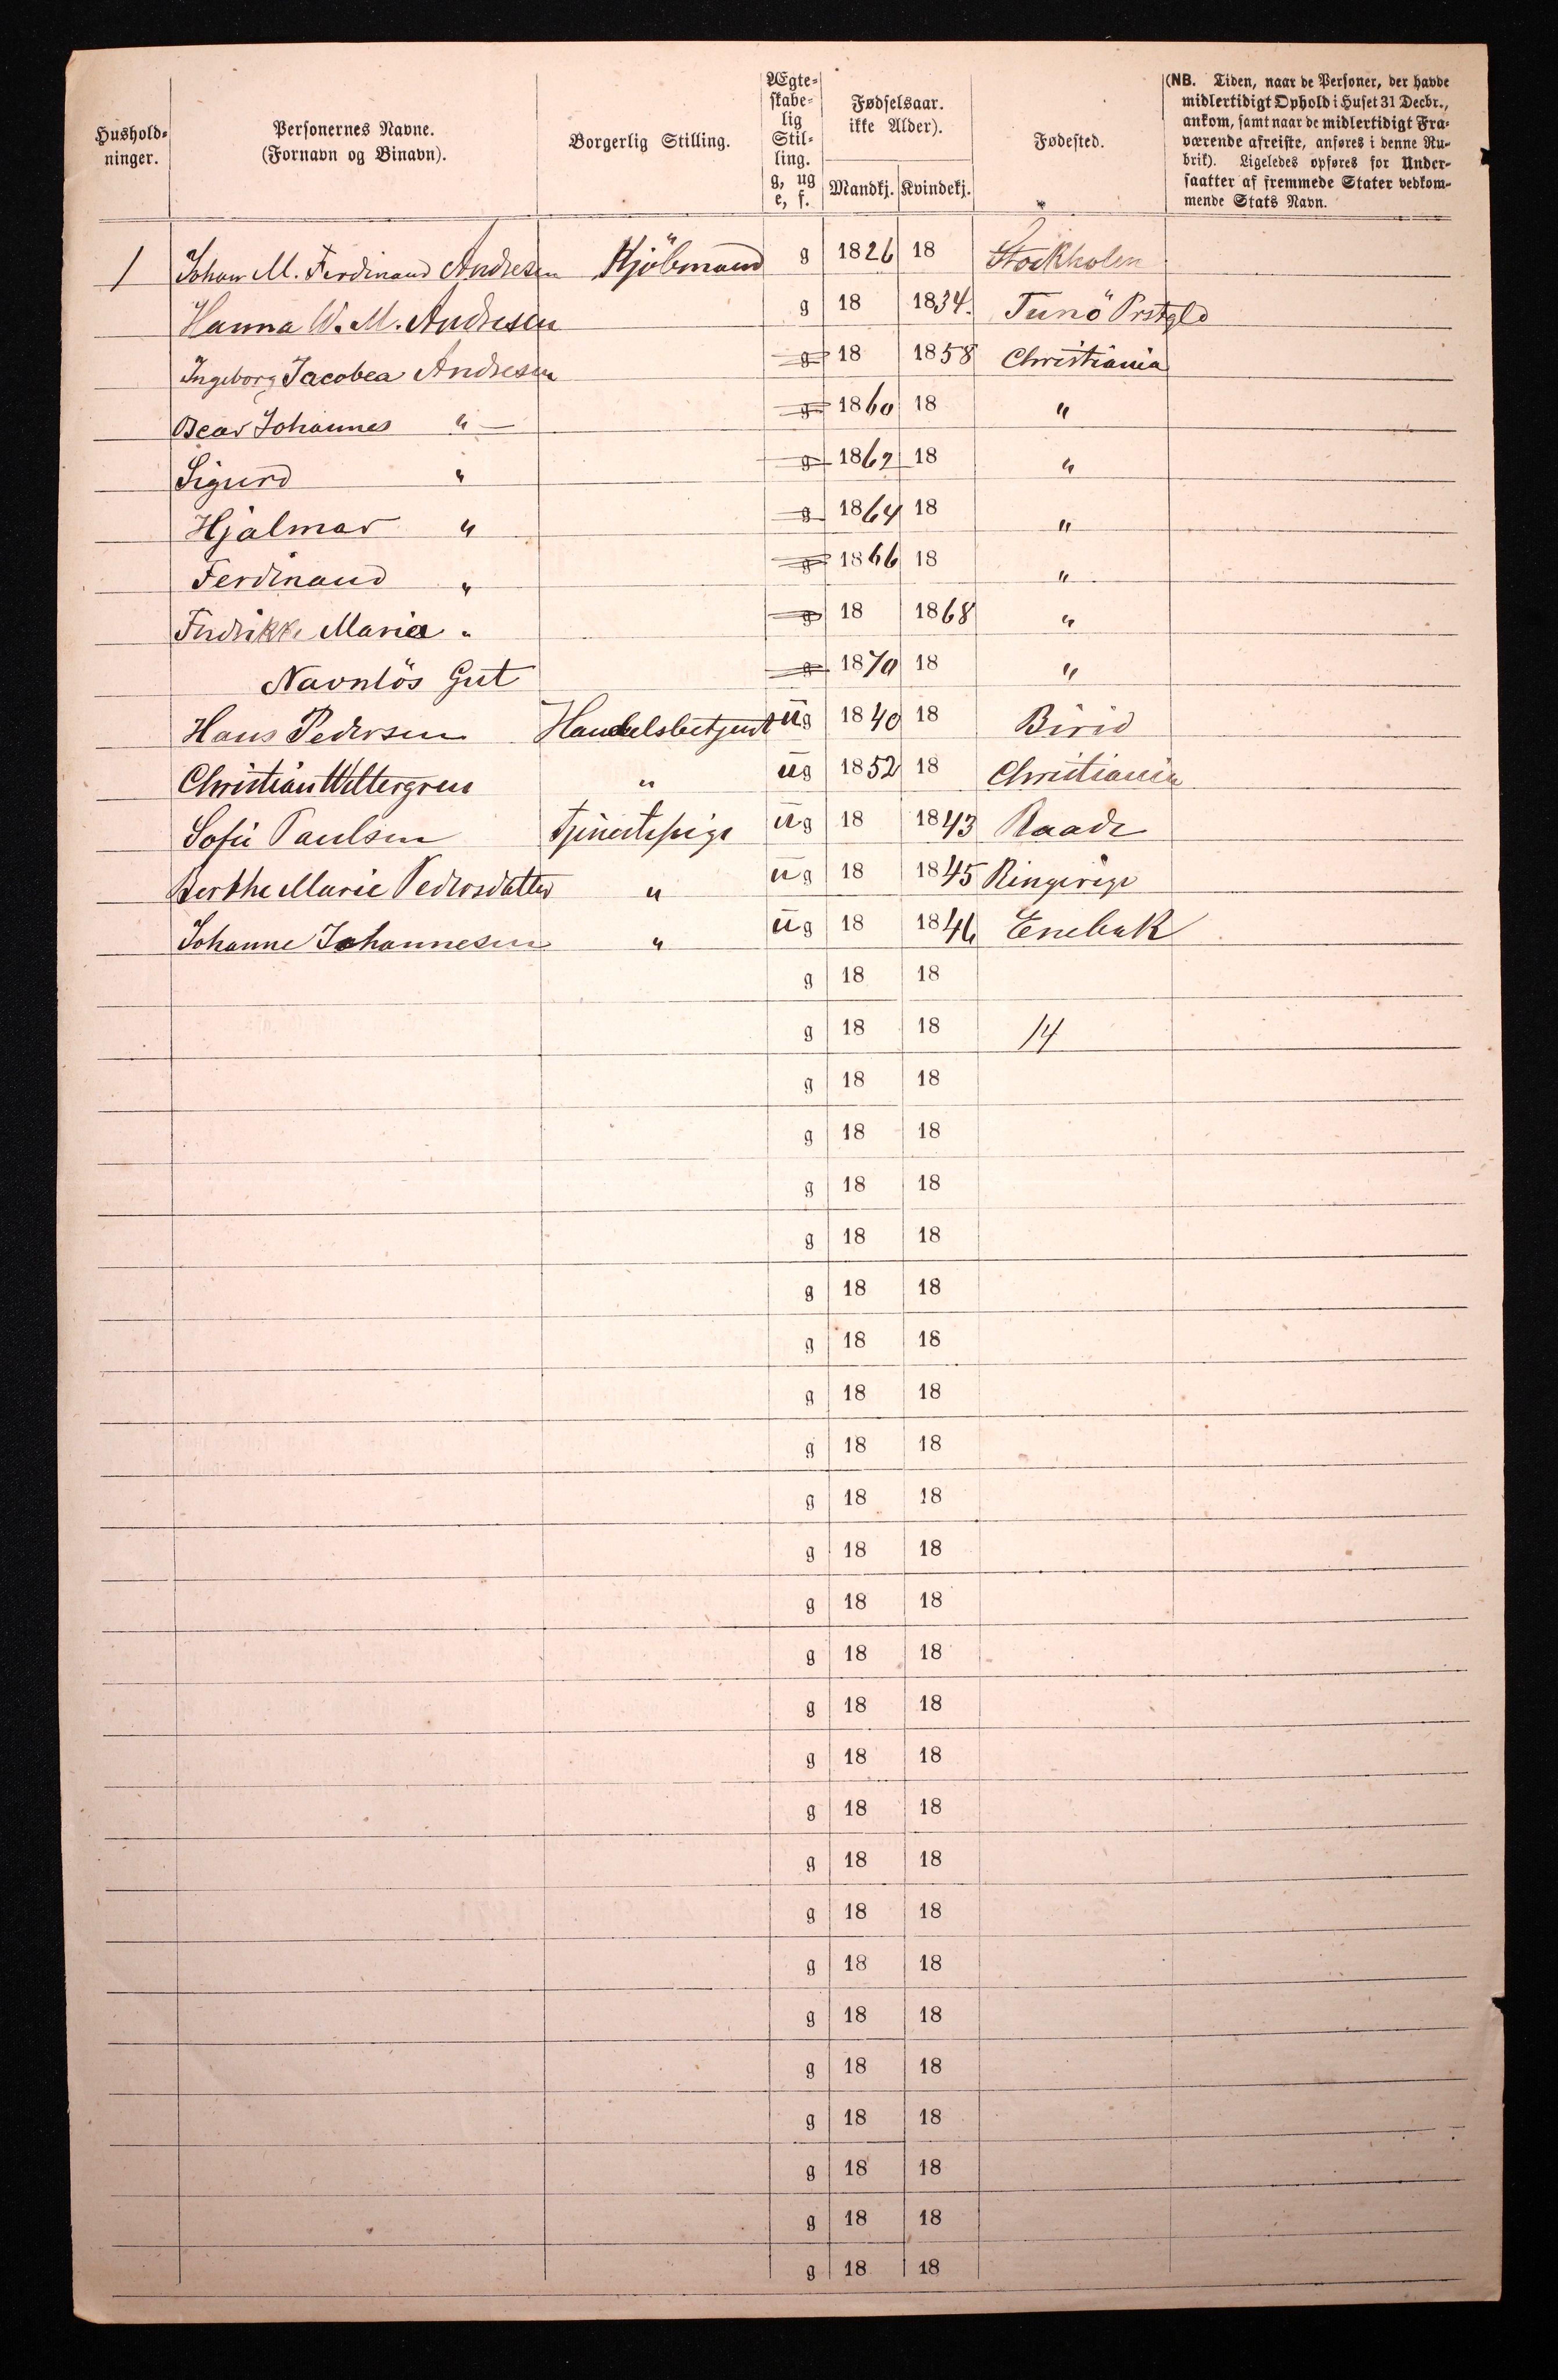 Hushold-
ninger.
Personernes Navne.
(Fornavn og Binavn).
Borgerlig Stilling.
Ægte-
skabe-
lig
Stil-
ling.
g, ug
e, f.
Fødselsaar.
ikke Alder).
Mandkj. Kvindekj.
Fødested.
(NB. Tiden, naar de Personer, der havde
midlertidigt Ophold i Huset 31 Decbr.,
ankom, samt naar de midlertidigt Fra-
værende afreiste, anføres i denne Ru-
brik). Ligeledes opføres for Under-
saatter af fremmede Stater vedkom-
mende Stats Navn.
1 Johan M. Ferdinand Andresen Kjöbmand g 1826 18 Stockholm
Hanna W. M. Andresen g 18 1834. Tunö Prstgld
Ingeborg Jacobea Andresen g 18 1858 Christiania
Oscar Johannes " — g 1860 18 "
Sigurd " g 1862 18 "
Hjalmar " g 1864 18 "
Ferdinand " g 1866 18 "
Fredrikke Maria " g 18 1868 "
Navnlös Gut g 1870 18 "
Hans Pedersen Handelsbetjent ug 1840 18 Birid
Christian Wettergren " ug 1852 18 Christiania
Sofie Paulsen Tjenestepige ug 18 1843 Raade
Berthe Marie Pedersdatter " ug 18 1845 Ringerige
Johanne Johannesen " ug 18 1846 Enebak
g 18 18
g 18 18 14
g 18 18
g 18 18
g 18 18
g 18 18
g 18 18
g 18 18
g 18 18
g 18 18
g 18 18
g 18 18
g 18 18
g 18 18
g 18 18
g 18 18
g 18 18
g 18 18
g 18 18
g 18 18
g 18 18
g 18 18
g 18 18
g 18 18
g 18 18
g 18 18